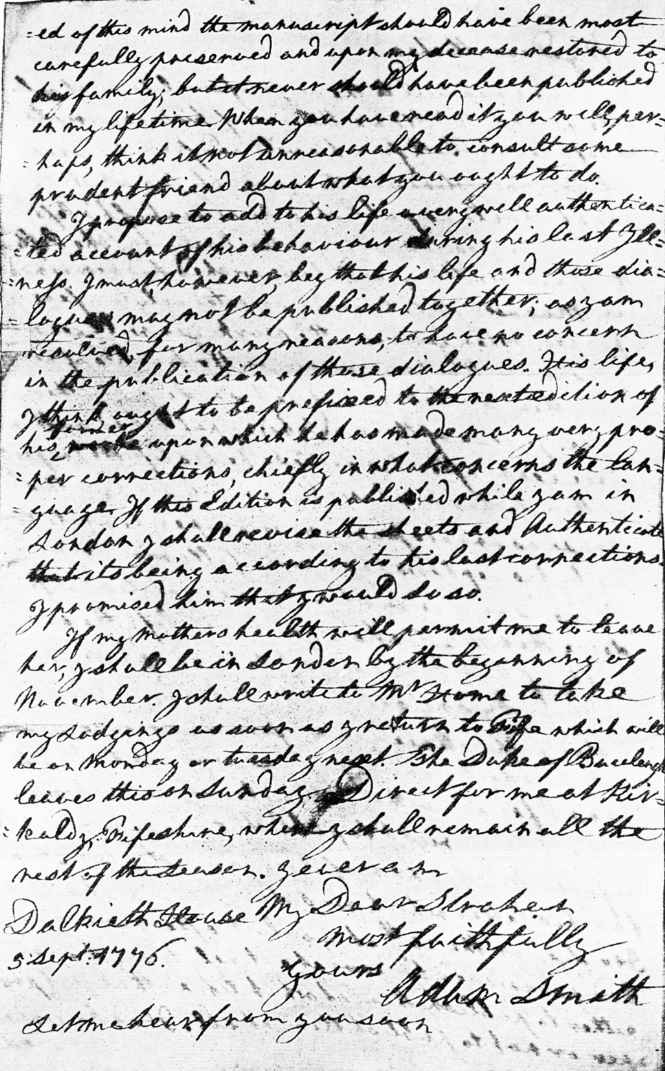 =ed of this mind the manuscript should have been most
carefully preserved and upon my decease restored to
his family; but it never should have been published
in my lifetime. When you have read it you will, per=
=haps, think it not unreasonable to consult some
prudent friend about what you ought to do.
I propose to add to his life a very well authentica=
=ted account of his behaviour during his last Ill=
=ness. I must, however, beg that his life and those dia=
=logues may not be published together; as I am
resolved, for many reasons, to have no concern
in the publication of those dialogues. His life,
I think, ought to be prefixed to the next edition of
former
his, works upon which he has made many very pro=
=per corrections, chiefly in what concerns the lan=
=guage. If this Edition is published while I am in
London I shall revise the sheets and Authenticate
its being according to his last corrections.
I promised him that I would do so.
If my mothers health will permit me to leave
her, I shall be in London by the beginning of
November. I shall write to Mr Home to take
my Lodgings as soon as I return to Fife which will
be on Monday or tuesday next. The Duke of Buccleugh
leaves this on Sunday. Direct for me at Kir=
=kaldy, Fifeshire, where I shall remain all the
rest of the season. I ever am
My Dear Strahan
Dalkieth House
most faithfully
5 Sept: 1776.
yours
Adam Smith
Let me hear from you soon